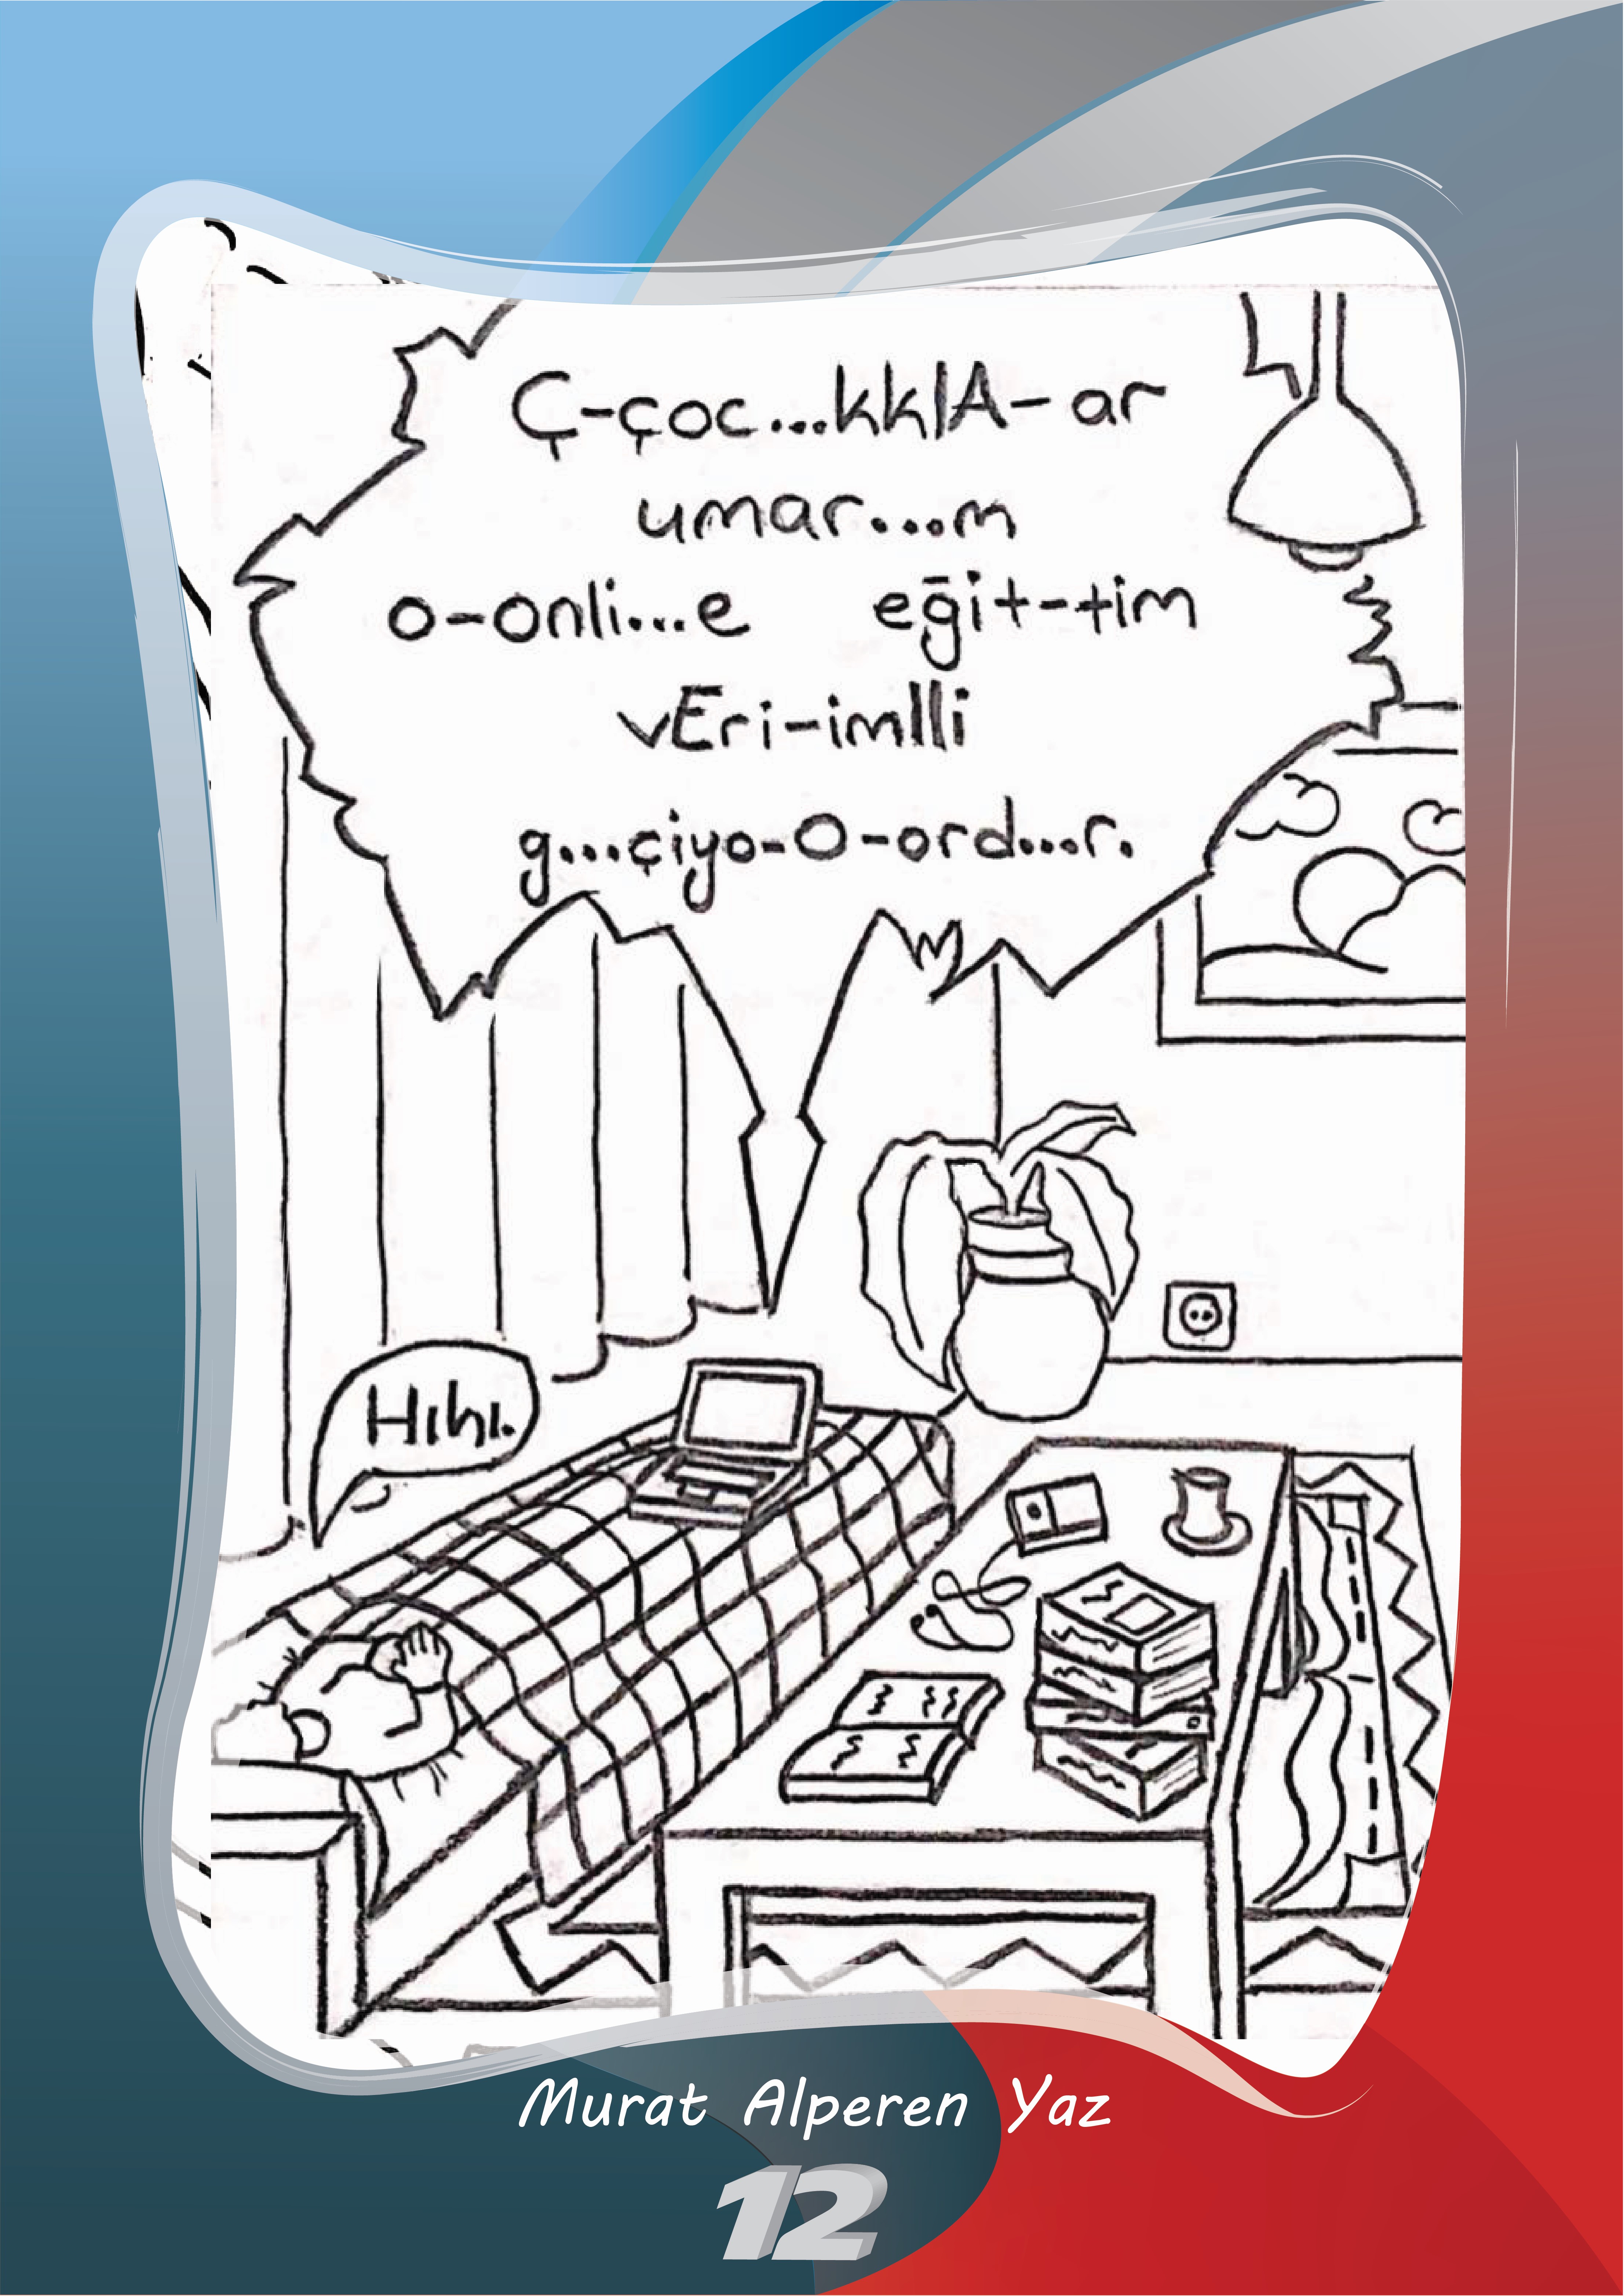 Ç-çoc...kklA-ar
umar...m
o-onli...e eğit-tim
vEri-imlli
g...çiyo-O-ord...r.
Hıhı.
Murat Alperen Yaz
12